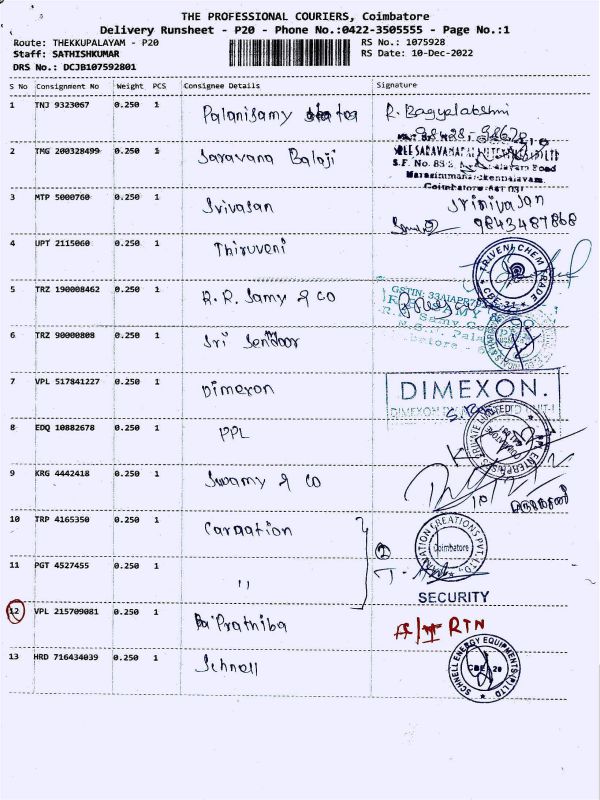 THE PROFESSIONAL COURIERS, Coimbatore
Delivery Runsheet - P20 - Phone No.:0422-3505555 - Page No.:1
Route: THEKKUPALAYAM - P20
RS No.: 1075928
Staff: SATHISHKUMAR
RS Date: 10-Dec-2022
DRS No.: DCJB107592801
S No Consignment No Weight PCS Consignee Details Signature
1 TNJ 9323067 0.250 1 Palanisamy R. Bagyalakshmi
2 TMG 200328499 0.250 1 Saravana Balaji
S.F. No. 
Coimbatore-641 031
3 MTP 5000760 0.250 1 Srivasan Srinivasan
9843487868
4 UPT 2115060 0.250 1 Thiruveni
TRIVENI CHEM TRADE
CBE-31
5 TRZ 190008462 0.250 1 R.R. Samy & CO
GSTIN:
6 TRZ 90000808 0.250 1 Sri
7 VPL 517841227 0.250 1 Dimexon
DIMEXON.
8 EDQ 10882678 0.250 1 PPL
PRIVATE LIMITED
9 KRG 4442418 0.250 1 Swamy & CO
10 TRP 4165350 0.250 1 Carnation
CREATIONS PVT. LTD.,
Coimbatore
2
11 PGT 4527455 0.250 1 "
SECURITY
12 VPL 215709081 0.250 1 Prathiba
RTN
13 HRD 716434039 0.250 1 Schnell
SCHNELL ENERGY EQUIPMENTS (P) LTD
CBE 20